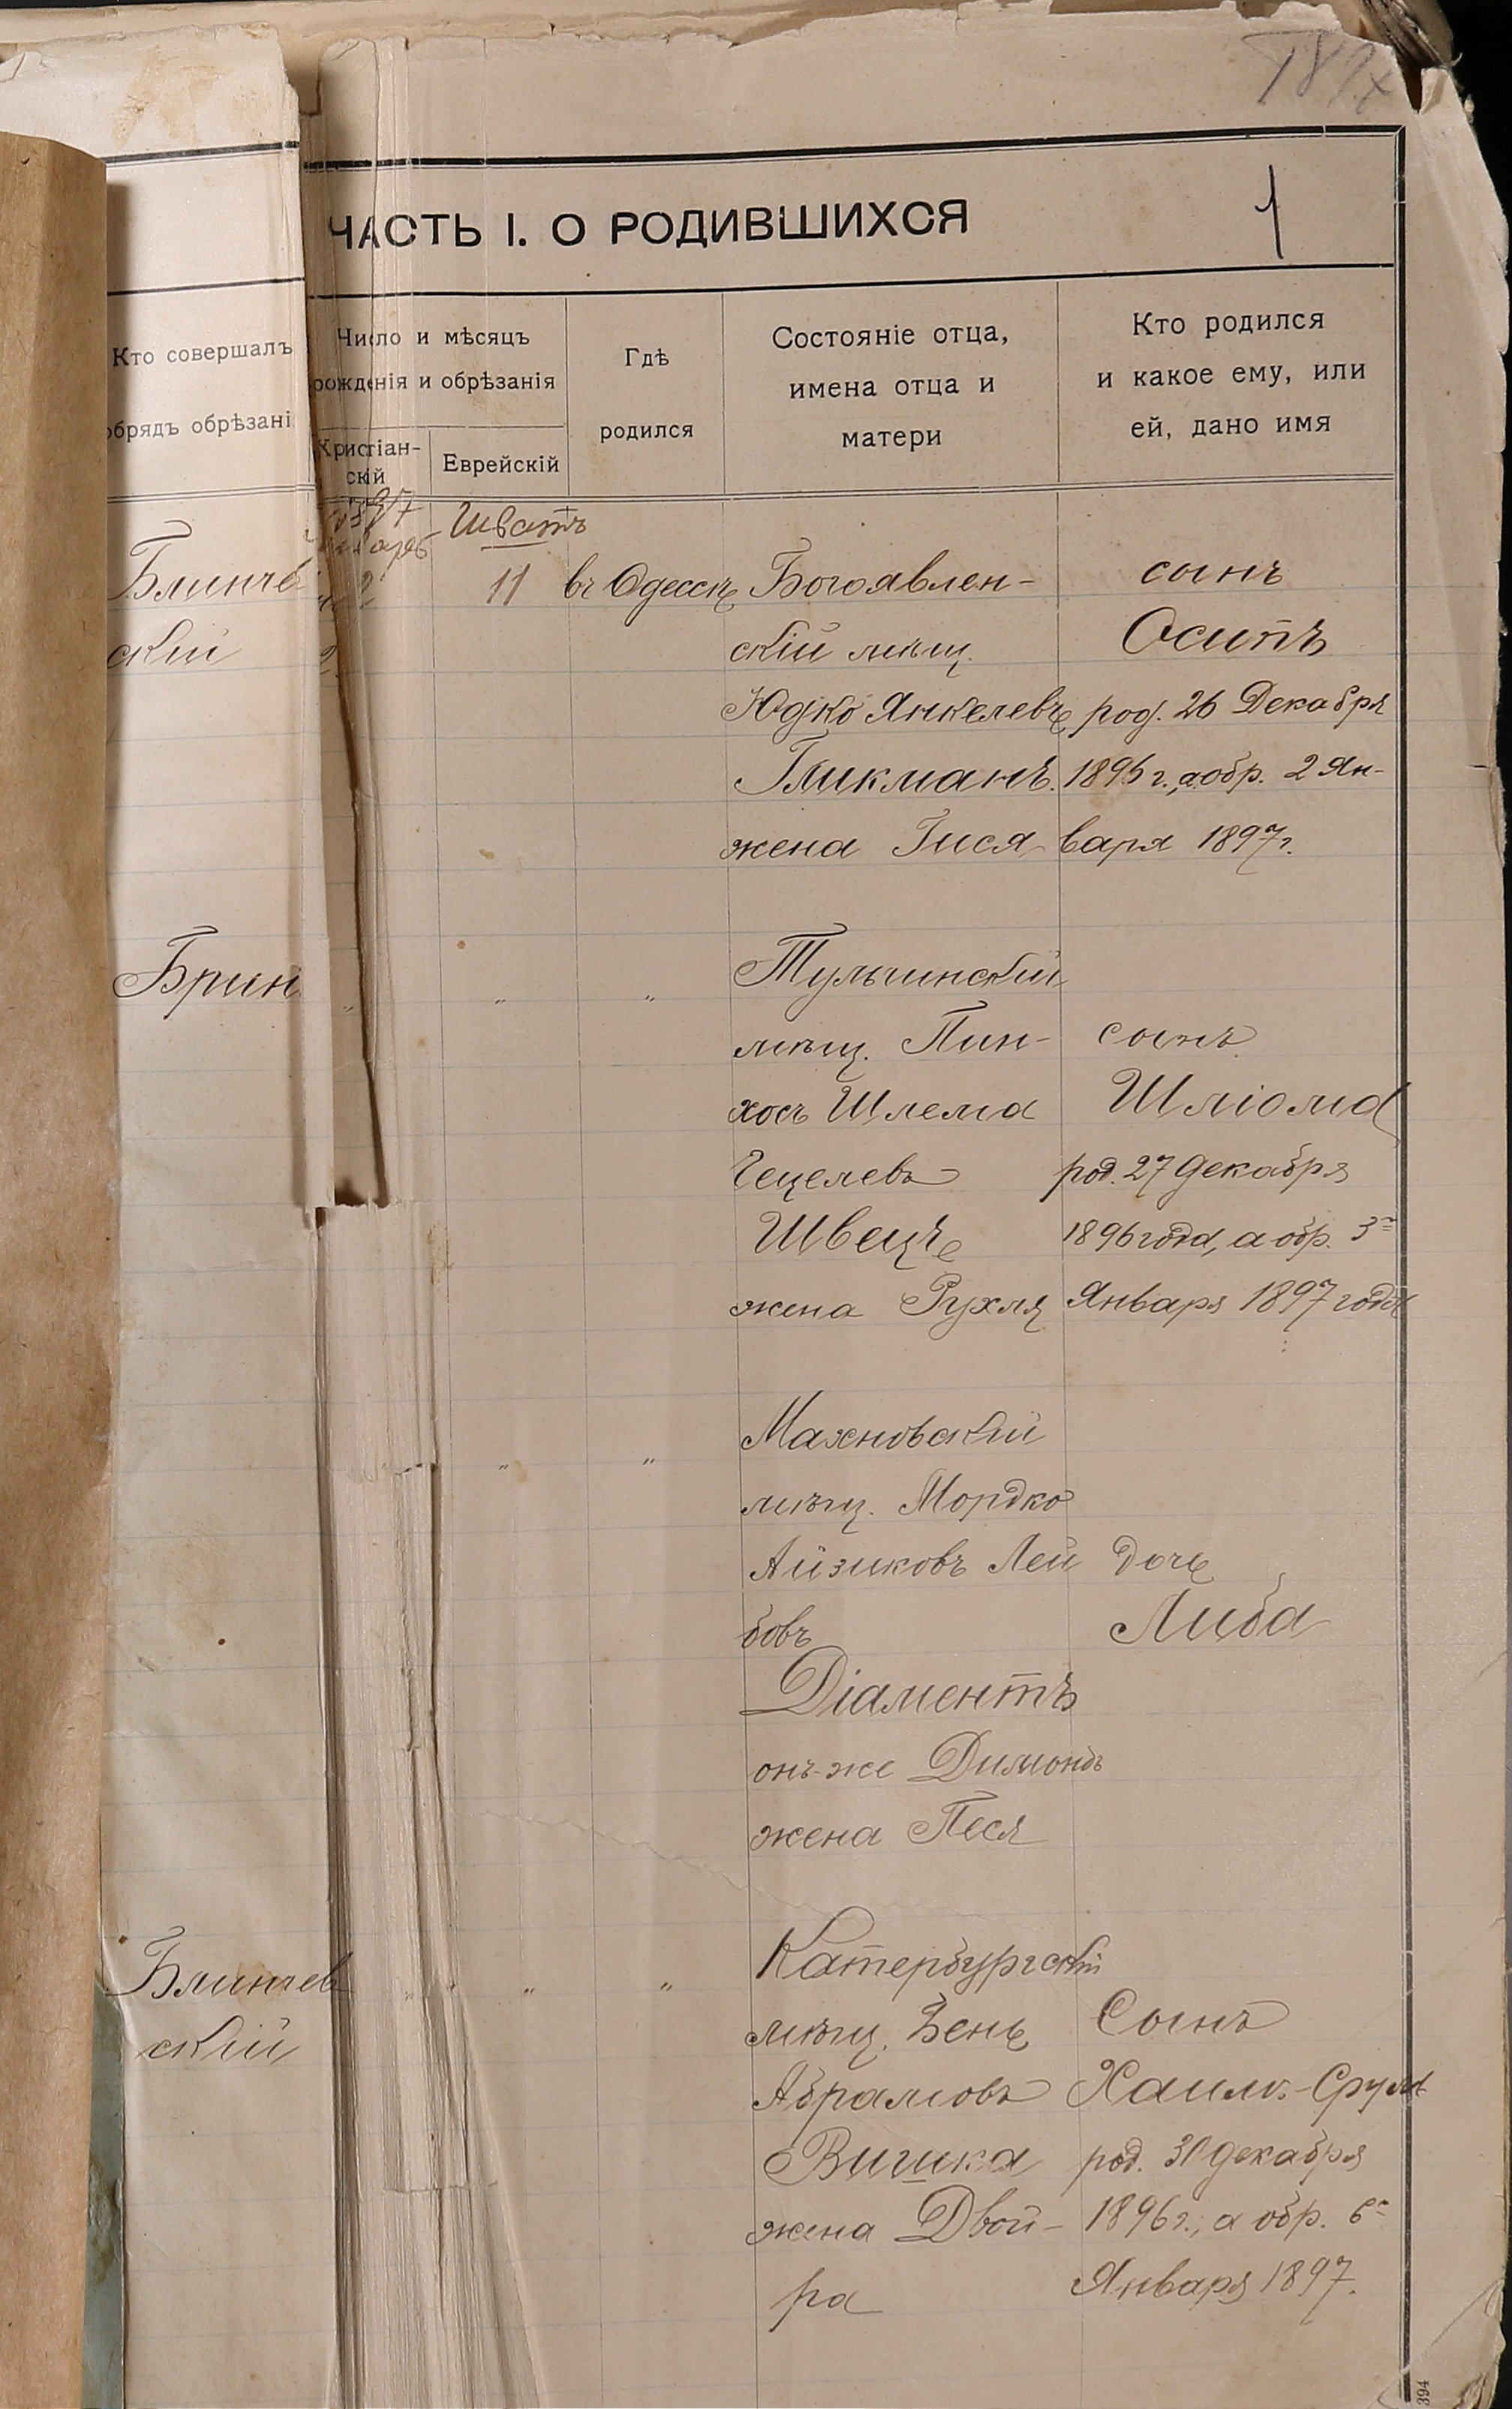 189
ЧАСТЬ I. О РОДИВШИХСЯ
1
Кто совершалъ
обрядъ обрѣзані
Число и мѣсяцъ
рожденія и обрѣзанія
Христіан-
скій
Еврейскій
Гдѣ
родился
Состояніе отца,
имена отца и
матери
Кто родился
и какое ему, или
ей, дано имя
Шватъ
11
въ Одессѣ
Богоявлен-
скій мѣщ.
Юдко Янкелевъ
Гликманъ.
жена Гися
сынъ
Осипъ
род. 26 Декабря
1896 г., а обр. 2 Ян-
варя 1897 г.
Брин
" " "
Тульчинскій
мѣщ. Пин-
хосъ Шлема
Гецелевъ
Швецъ
жена Рухля
сынъ
Шліома
род. 27 декабря
1896 года, а обр. 3го
Января 1897 года
" "
Махновскій
мѣщ. Мордко
Айзиковъ Лей
бовъ
Діаментъ
онъ-же Димондъ
жена Песя
дочь
Либа
Блинчев
скій
" " " "
Катербургскій
мѣщ. Бень
Абрамовъ
Вишка
жена Двой-
ра
Сынъ
Хаим-Сруль
род. 30 декабря
1896 г., а обр. 6го
Января 1897.
394